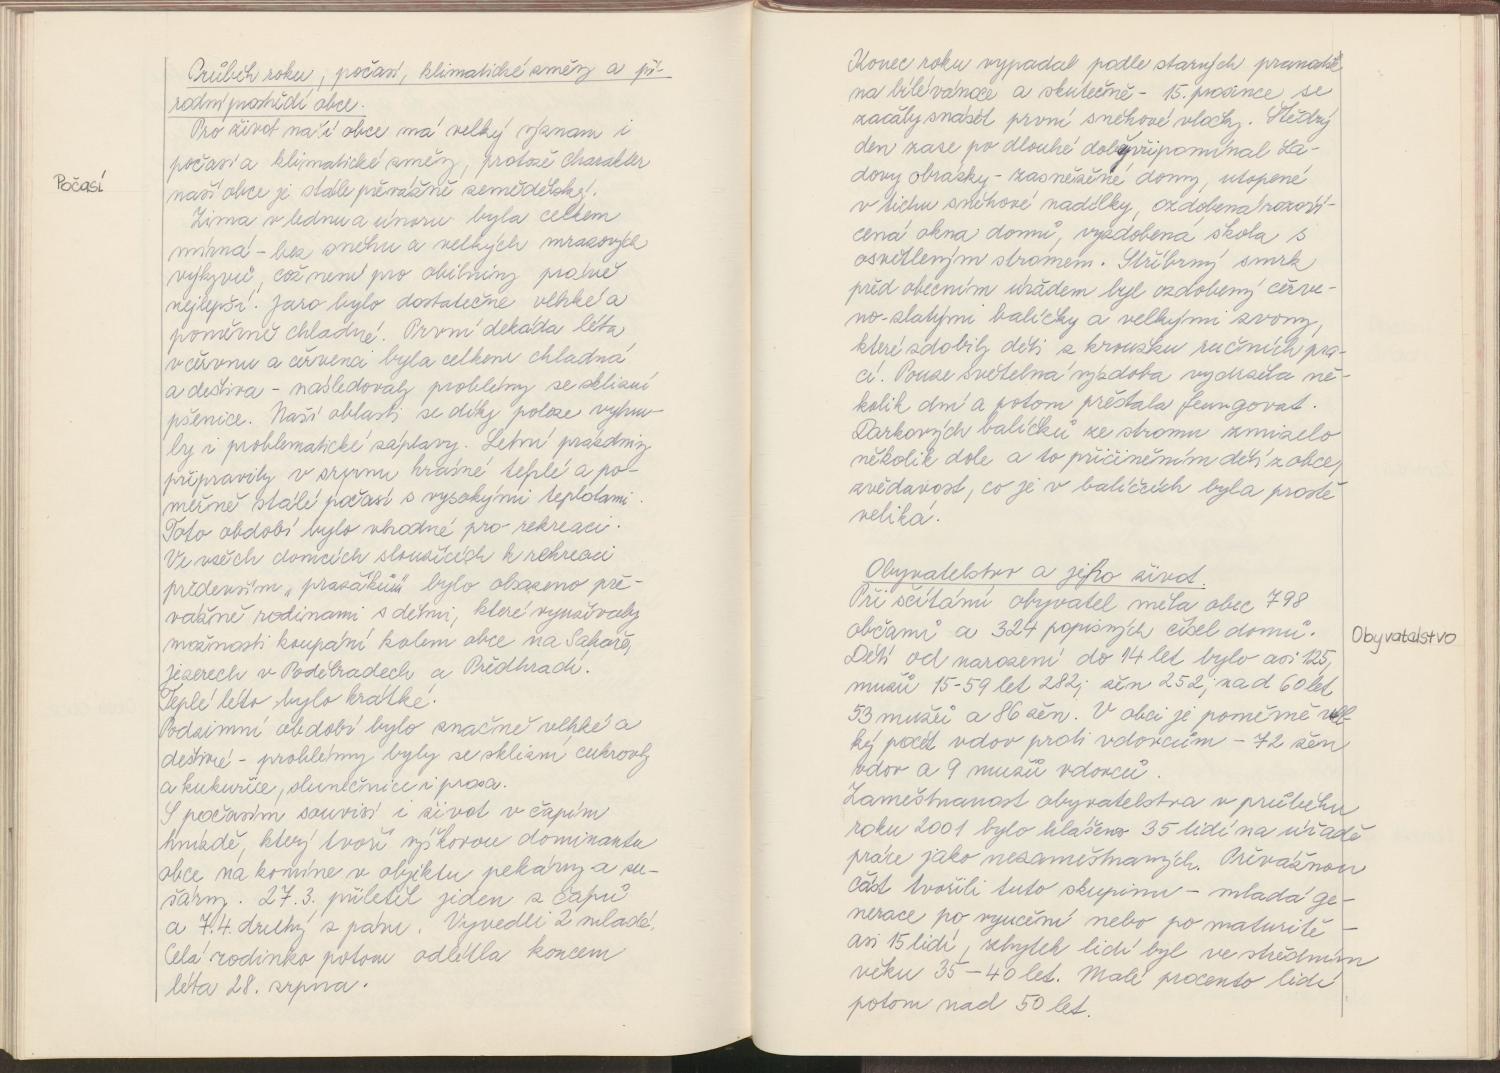 Počasí
Průběh roku, počasí, klimatické změny a pří-
rodní prostředí obce.
Pro život naší obce má velký význam i
počasí a klimatické změny, protože charakter
naší obce je stále převážně zemědělský.
Zima v lednu a únoru byla celkem
mírná - bez sněhu a velkých mrazových
výkyvů, což není pro obilniny právě
nejlepší. Jaro bylo dostatečně vlhké a
poměrně chladné. První dekáda léta
v červnu a červenci byla celkem chladná
a deštivá - následovaly problémy se sklizní
pšenice. Naší oblasti se díky poloze vyhnu-
ly i problematické záplavy. Letní prázdniny
připravily v srpnu krásné teplé a po-
měrně stálé počasí s vysokými teplotami.
Toto období bylo vhodné pro rekreaci.
Ve všech domcích sloužících k rekreaci
především "pražáků" bylo obsazeno pře-
vážně rodinami s dětmi, které využívaly
možnosti koupání kolem obce na Sakaře,
jezerech v Poděbradech a Předhradí.
Teplé léto bylo krátké.
Podzimní období bylo značně vlhké a
deštivé - problémy byly se sklizní cukrovky
a kukuřice, slunečnice i prosa.
S počasím souvisí i život v čapím
hnízdě, který tvoří výškovou dominantu
obce na komíně v objektu pekárny a su-
šárny. 27.3. přiletěl jeden z čápů
a 7.4. druhý z páru. Vyvedli 2 mladé.
Celá rodinka potom odlétla koncem
léta 28. srpna.
Konec roku vypadal podle starých pranostik
na bílé vánoce a skutečně - 15. prosince se
začaly snášet první sněhové vločky. Štědrý
den zase po dlouhé době připomínal La-
dovy obrázky - zasněžené domy, utopené
v tichu sněhové nadílky, ozdobená rozsví-
cená okna domů, vyzdobená škola s
osvětleným stromem. Stříbrný smrk
před obecním úřadem byl ozdobený červe-
no-zlatými balíčky a velkými zvony,
které zdobily děti z kroužku ručních pra-
cí. Pouze světelná výzdoba vydržela ně-
kolik dní a potom přestala fungovat.
Dárkových balíčků ze stromu zmizelo
několik dole a to přičiněním dětí z obce,
zvědavost, co je v balíčcích byla prostě
veliká.
Obyvatelstvo a jeho život.
Obyvatelstvo
Při sčítání obyvatel měla obec 798
občanů a 324 popisných čísel domů.
Dětí od narození do 14 let bylo asi 125,
mužů 15-59 let 282; žen 252; nad 60 let
53 mužů a 86 žen. V obci je poměrně vel-
ký počet vdov proti vdovcům - 72 žen
vdov a 9 mužů vdovců.
Zaměstnanost obyvatelstva v průběhu
roku 2001 bylo hlášeno 35 lidí na úřadě
práce jako nezaměstnaných. Převážnou
část tvořili tuto skupinu - mladá ge-
nerace po vyučení nebo po maturitě -
asi 15 lidí, zbytek lidí byl ve středním
věku 35-40 let. Malé procento lidí
potom nad 50 let.